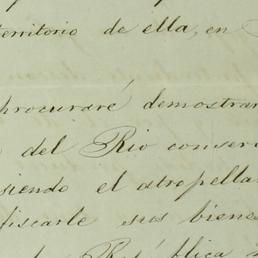 territorio de ella, en
procuraré demostrar
del Rio conser
siendo el atropella
fiscarle sus biene